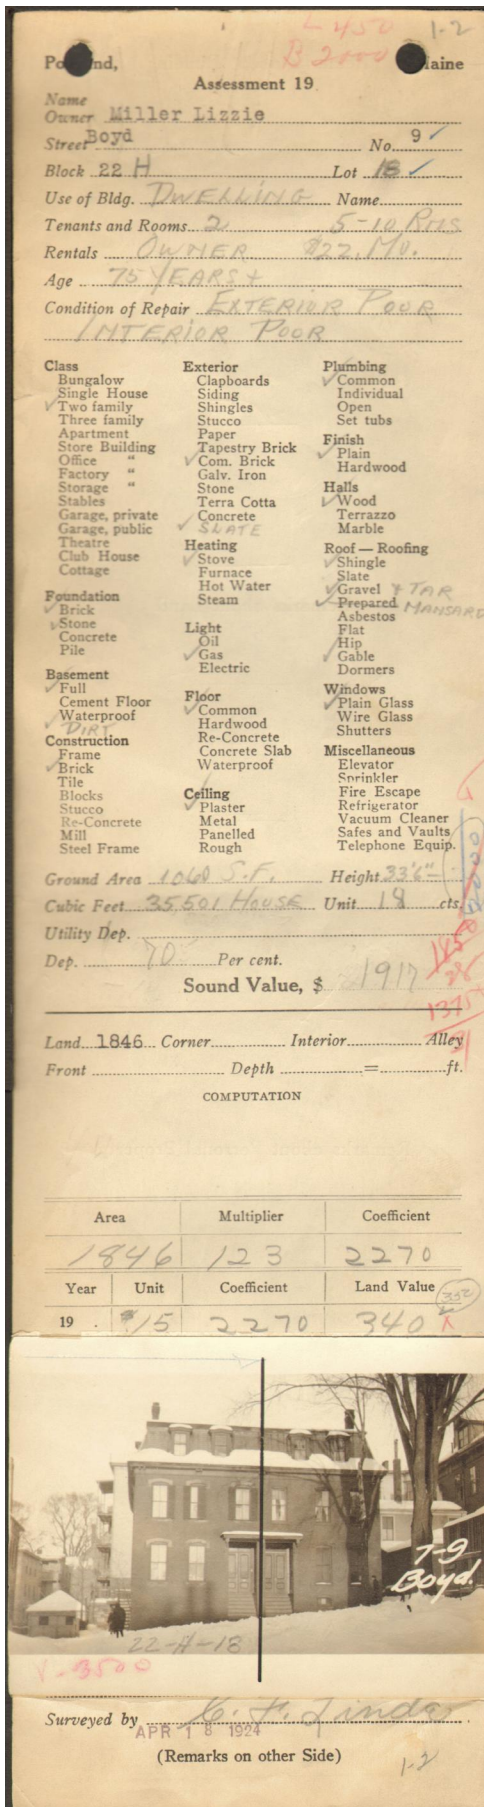 L 450 1-2
B 2000
Po nd, aine
Assessment 19
Name
Owner Miller Lizzie
Street Boyd No. 9 ✓
Block 22 H Lot 18 ✓
Use of Bldg. DWELLING Name
Tenants and Rooms 2 5-10 RMS
Rentals OWNER $22. Mo.
Age 75 YEARS +
Condition of Repair EXTERIOR POOR
INTERIOR POOR
Class
Bungalow
Single House
✓ Two family
Three family
Apartment
Store Building
Office "
Factory "
Storage "
Stables
Garage, private
Garage, public
Theatre
Club House
Cottage
Foundation
✓ Brick
✓ Stone
Concrete
Pile
Basement
✓ Full
Cement Floor
✓ Waterproof
DIRT
Construction
Frame
✓ Brick
Tile
Blocks
Stucco
Re-Concrete
Mill
Steel Frame
Exterior
Clapboards
Siding
Shingles
Stucco
Paper
Tapestry Brick
✓ Com. Brick
Galv. Iron
Stone
Terra Cotta
Concrete
✓ SLATE
Heating
✓ Stove
Furnace
Hot Water
Steam
Light
Oil
✓ Gas
Electric
Floor
✓ Common
Hardwood
Re-Concrete
Concrete Slab
Waterproof
Ceiling
✓ Plaster
Metal
Panelled
Rough
Plumbing
✓ Common
Individual
Open
Set tubs
Finish
✓ Plain
Hardwood
Halls
✓ Wood
Terrazzo
Marble
Roof — Roofing
✓ Shingle
Slate
✓ Gravel + TAR
✓ Prepared MANSARD
Asbestos
Flat
✓ Hip
✓ Gable
Dormers
Windows
✓ Plain Glass
Wire Glass
Shutters
Miscellaneous
Elevator
Sprinkler
Fire Escape
Refrigerator
Vacuum Cleaner
Safes and Vaults
Telephone Equip.
Ground Area 1060 S.F. Height 33'6"
Cubic Feet 35501 HOUSE Unit 18 cts.
Utility Dep.
Dep. 70 Per cent.
Sound Value, $ 1917
1375
Land 1846 Corner Interior Alley
Front Depth = ft.
COMPUTATION
Area Multiplier Coefficient
1846 123 2270
Year Unit Coefficient Land Value 352
19 . $15 2270 340
7-9
Boyd.
22-A-18
V-3500
Surveyed by C. F. Linda
APR 18 1924
(Remarks on other Side)
1-2